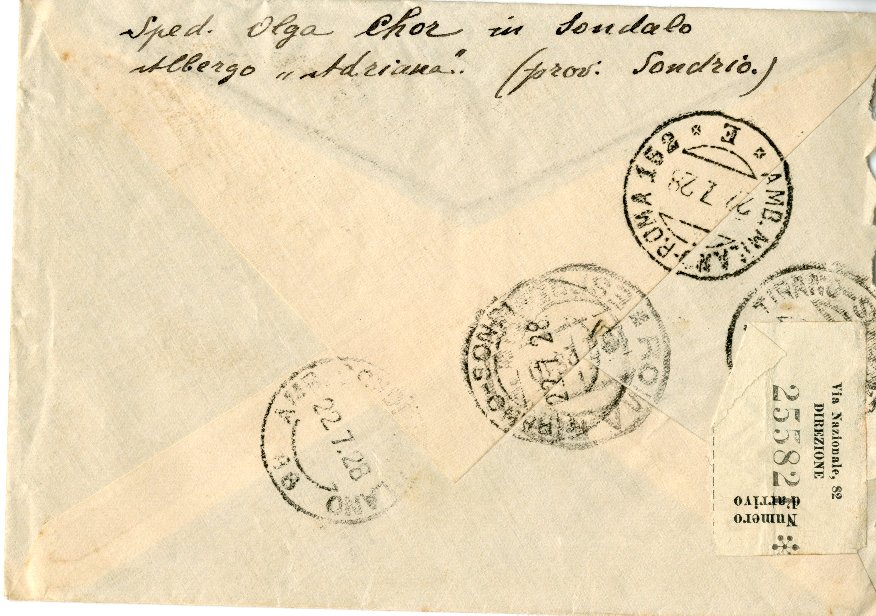 Sped. Olga Chor in Sondalo
Albergo „Adriana". (prov. Sondrio.)
AMB. MILAN-ROMA 152 * E *
7.28
TIRANO-S
ROMA
22.7.28
22.7.28
LANO
Via Nazionale, 82
DIREZIONE
25582
Numero
d'arrivo